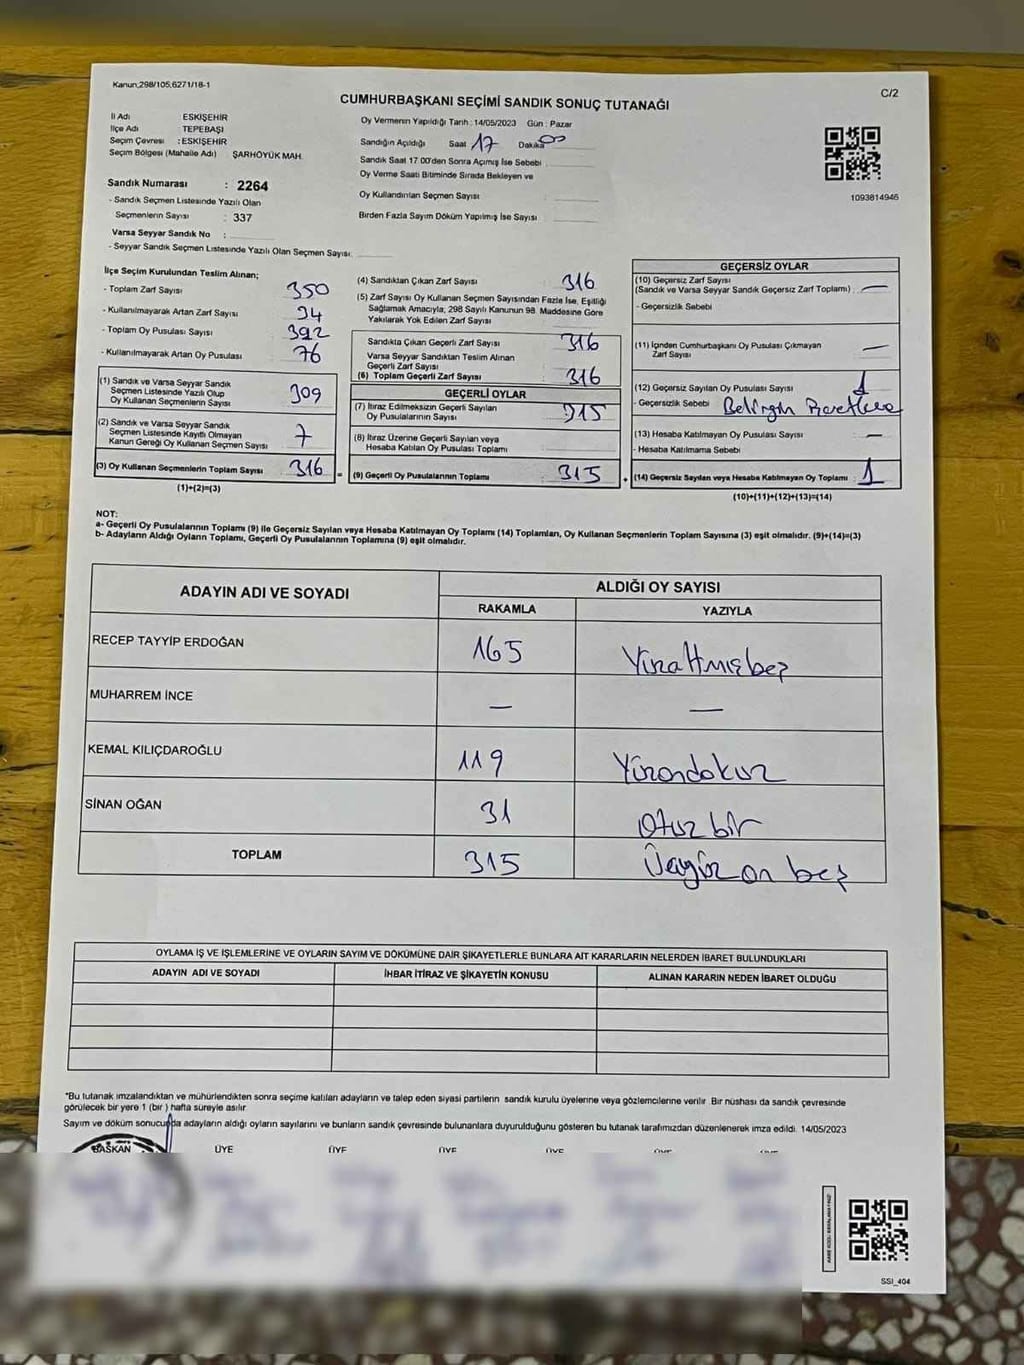 Kanun;298/105,6271/18-1
C/2
CUMHURBAŞKANI SEÇİMİ SANDIK SONUÇ TUTANAĞI
İl Adı ESKİŞEHİR
İlçe Adı TEPEBAŞI
Seçim Çevresi : ESKİŞEHİR
Seçim Bölgesi (Mahalle Adı) ŞARHÖYÜK MAH.
Sandık Numarası : 2264
- Sandık Seçmen Listesinde Yazılı Olan
Seçmenlerin Sayısı : 337
Varsa Seyyar Sandık No :
- Seyyar Sandık Seçmen Listesinde Yazılı Olan Seçmen Sayısı:
Oy Vermenin Yapıldığı Tarih : 14/05/2023 Gün : Pazar
Sandığın Açıldığı Saat 17 Dakika 00
Sandık Saat 17.00'den Sonra Açımış İse Sebebi
Oy Verme Saati Bitiminde Sırada Bekleyen ve
Oy Kullandırılan Seçmen Sayısı
Birden Fazla Sayım Döküm Yapılmış İse Sayısı
1093814946
İlçe Seçim Kurulundan Teslim Alınan;
- Toplam Zarf Sayısı 350
- Kullanılmayarak Artan Zarf Sayısı 34
- Toplam Oy Pusulası Sayısı 392
- Kullanılmayarak Artan Oy Pusulası 76
(1) Sandık ve Varsa Seyyar Sandık
Seçmen Listesinde Yazılı Olup
Oy Kullanan Seçmenlerin Sayısı 309
(2) Sandık ve Varsa Seyyar Sandık
Seçmen Listesinde Kayıtlı Olmayan
Kanun Gereği Oy Kullanan Seçmen Sayısı 7
(3) Oy Kullanan Seçmenlerin Toplam Sayısı 316 =
(1)+(2)=(3)
(4) Sandıktan Çıkan Zarf Sayısı 316
(5) Zarf Sayısı Oy Kullanan Seçmen Sayısından Fazla İse, Eşitliği
Sağlamak Amacıyla; 298 Sayılı Kanunun 98. Maddesine Göre
Yakılarak Yok Edilen Zarf Sayısı
Sandıkta Çıkan Geçerli Zarf Sayısı 316
Varsa Seyyar Sandıktan Teslim Alınan
Geçerli Zarf Sayısı
(6) Toplam Geçerli Zarf Sayısı 316
GEÇERLİ OYLAR
(7) İtiraz Edilmeksizin Geçerli Sayılan
Oy Pusulalarının Sayısı 315
(8) İtiraz Üzerine Geçerli Sayılan veya
Hesaba Katılan Oy Pusulası Toplamı
(9) Geçerli Oy Pusulalarının Toplamı 315 +
GEÇERSİZ OYLAR
(10) Geçersiz Zarf Sayısı
(Sandık ve Varsa Seyyar Sandık Geçersiz Zarf Toplamı) : —
- Geçersizlik Sebebi
(11) İçinden Cumhurbaşkanı Oy Pusulası Çıkmayan
Zarf Sayısı —
(12) Geçersiz Sayılan Oy Pusulası Sayısı : 1
- Geçersizlik Sebebi Belirgin
(13) Hesaba Katılmayan Oy Pusulası Sayısı : —
- Hesaba Katılmama Sebebi
(14) Geçersiz Sayılan veya Hesaba Katılmayan Oy Toplamı : 1
(10)+(11)+(12)+(13)=(14)
NOT:
a- Geçerli Oy Pusulalarının Toplamı (9) ile Geçersiz Sayılan veya Hesaba Katılmayan Oy Toplamı (14) Toplamları, Oy Kullanan Seçmenlerin Toplam Sayısına (3) eşit olmalıdır. (9)+(14)=(3)
b- Adayların Aldığı Oyların Toplamı, Geçerli Oy Pusulalarının Toplamına (9) eşit olmalıdır.
ADAYIN ADI VE SOYADI
ALDIĞI OY SAYISI
RAKAMLA YAZIYLA
RECEP TAYYİP ERDOĞAN 165 Yüzaltmışbeş
MUHARREM İNCE — —
KEMAL KILIÇDAROĞLU 119 Yüzondokuz
SİNAN OĞAN 31 Otuz bir
TOPLAM 315 Üçyüz on beş
OYLAMA İŞ VE İŞLEMLERİNE VE OYLARIN SAYIM VE DÖKÜMÜNE DAİR ŞİKAYETLERLE BUNLARA AİT KARARLARIN NELERDEN İBARET BULUNDUKLARI
ADAYIN ADI VE SOYADI İHBAR İTİRAZ VE ŞİKAYETİN KONUSU ALINAN KARARIN NEDEN İBARET OLDUĞU
"Bu tutanak imzalandıktan ve mühürlendikten sonra seçime katılan adayların ve talep eden siyasi partilerin sandık kurulu üyelerine veya gözlemcilerine verilir. Bir nüshası da sandık çevresinde
görülecek bir yere 1 (bir ) hafta süreyle asılır.
Sayım ve döküm sonucunda adayların aldığı oyların sayılarını ve bunların sandık çevresinde bulunanlara duyurulduğunu gösteren bu tutanak tarafımızdan düzenlenerek imza edildi. 14/05/2023
BAŞKAN ÜYE ÜYE ÜYE ÜYE ÜYE
SSI_404